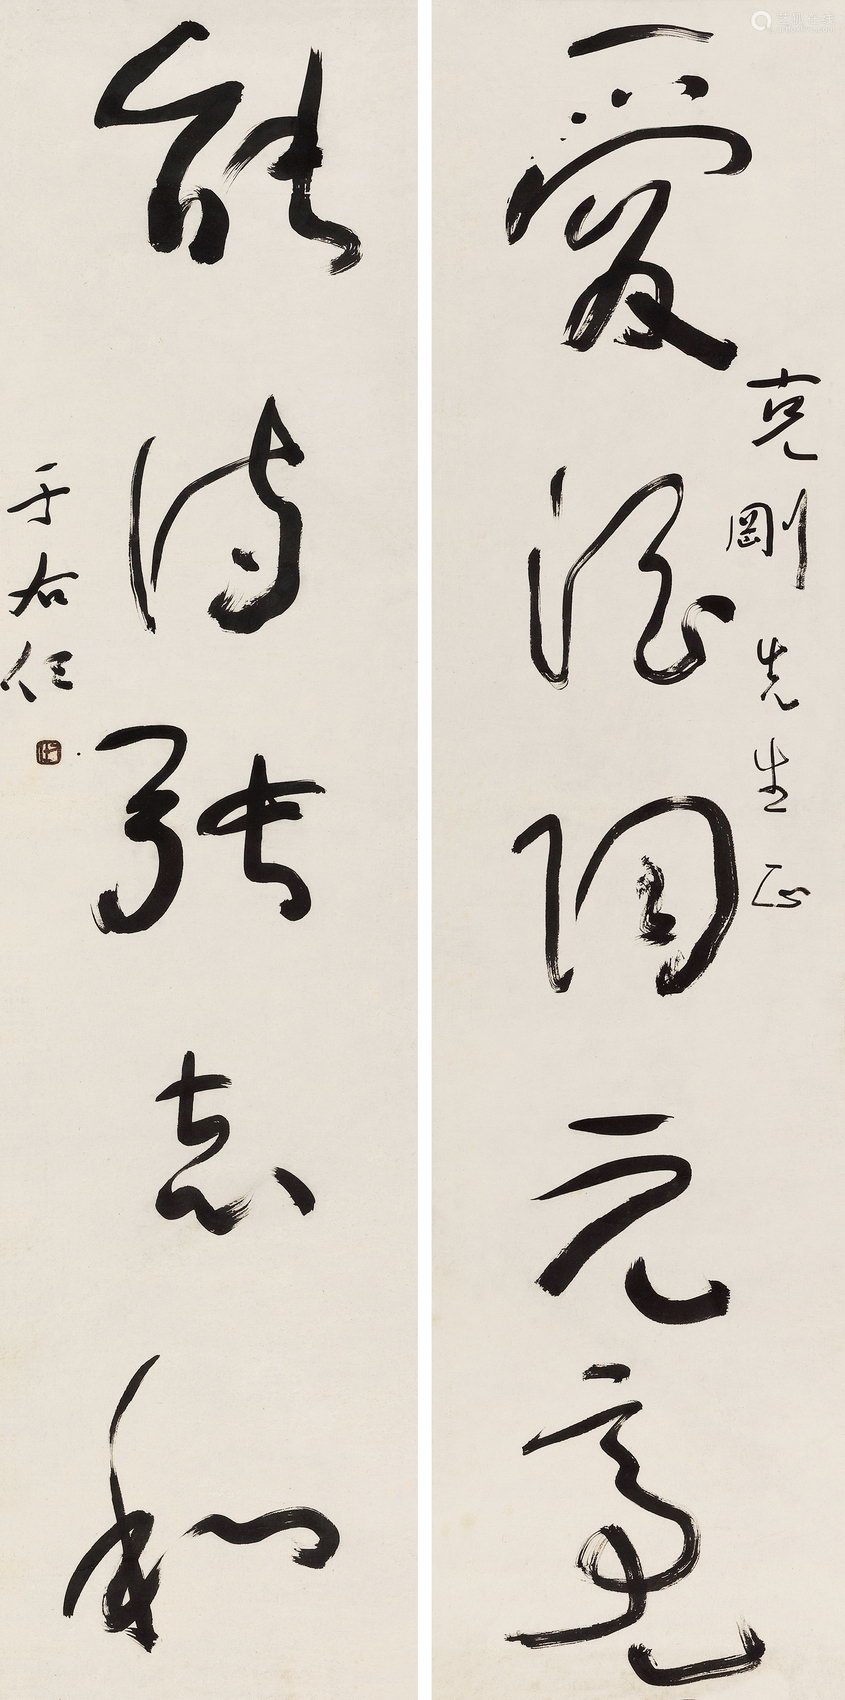 愛酒陶元亮
克剛先生正
能詩張志和
于右任